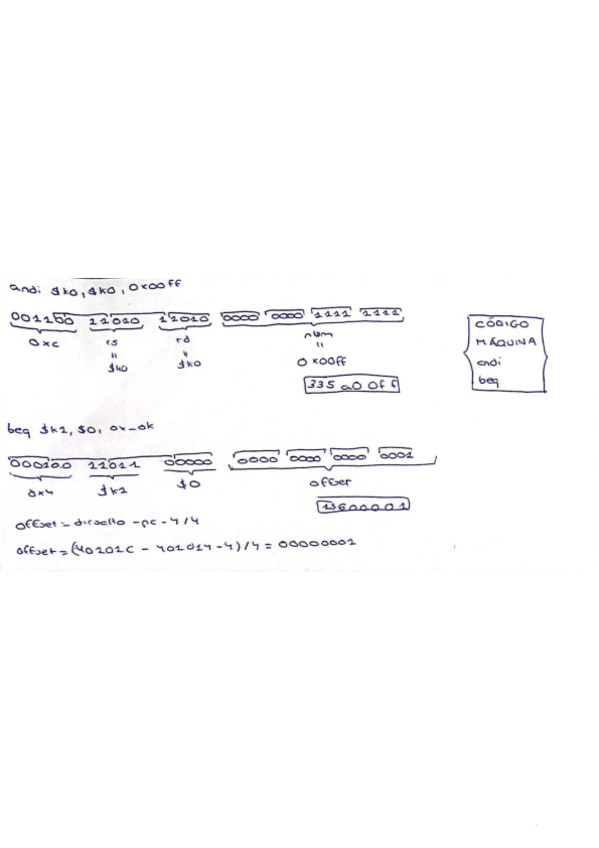 andi $k0, $k0, 0x00ff
001100 11010 11010 0000 0000 1111 1111
0xc rs rd num
" " "
$k0 $k0 0x00ff
335a00ff
CÓDIGO
MÁQUINA
andi
beq
beq $k1, $0, ox_ok
000100 11011 00000 0000 0000 0000 0001
0x4 $k1 $0 offset
13600001
offset = - pc - 4 / 4
offset = (40101C - 401014 - 4) / 4 = 00000001